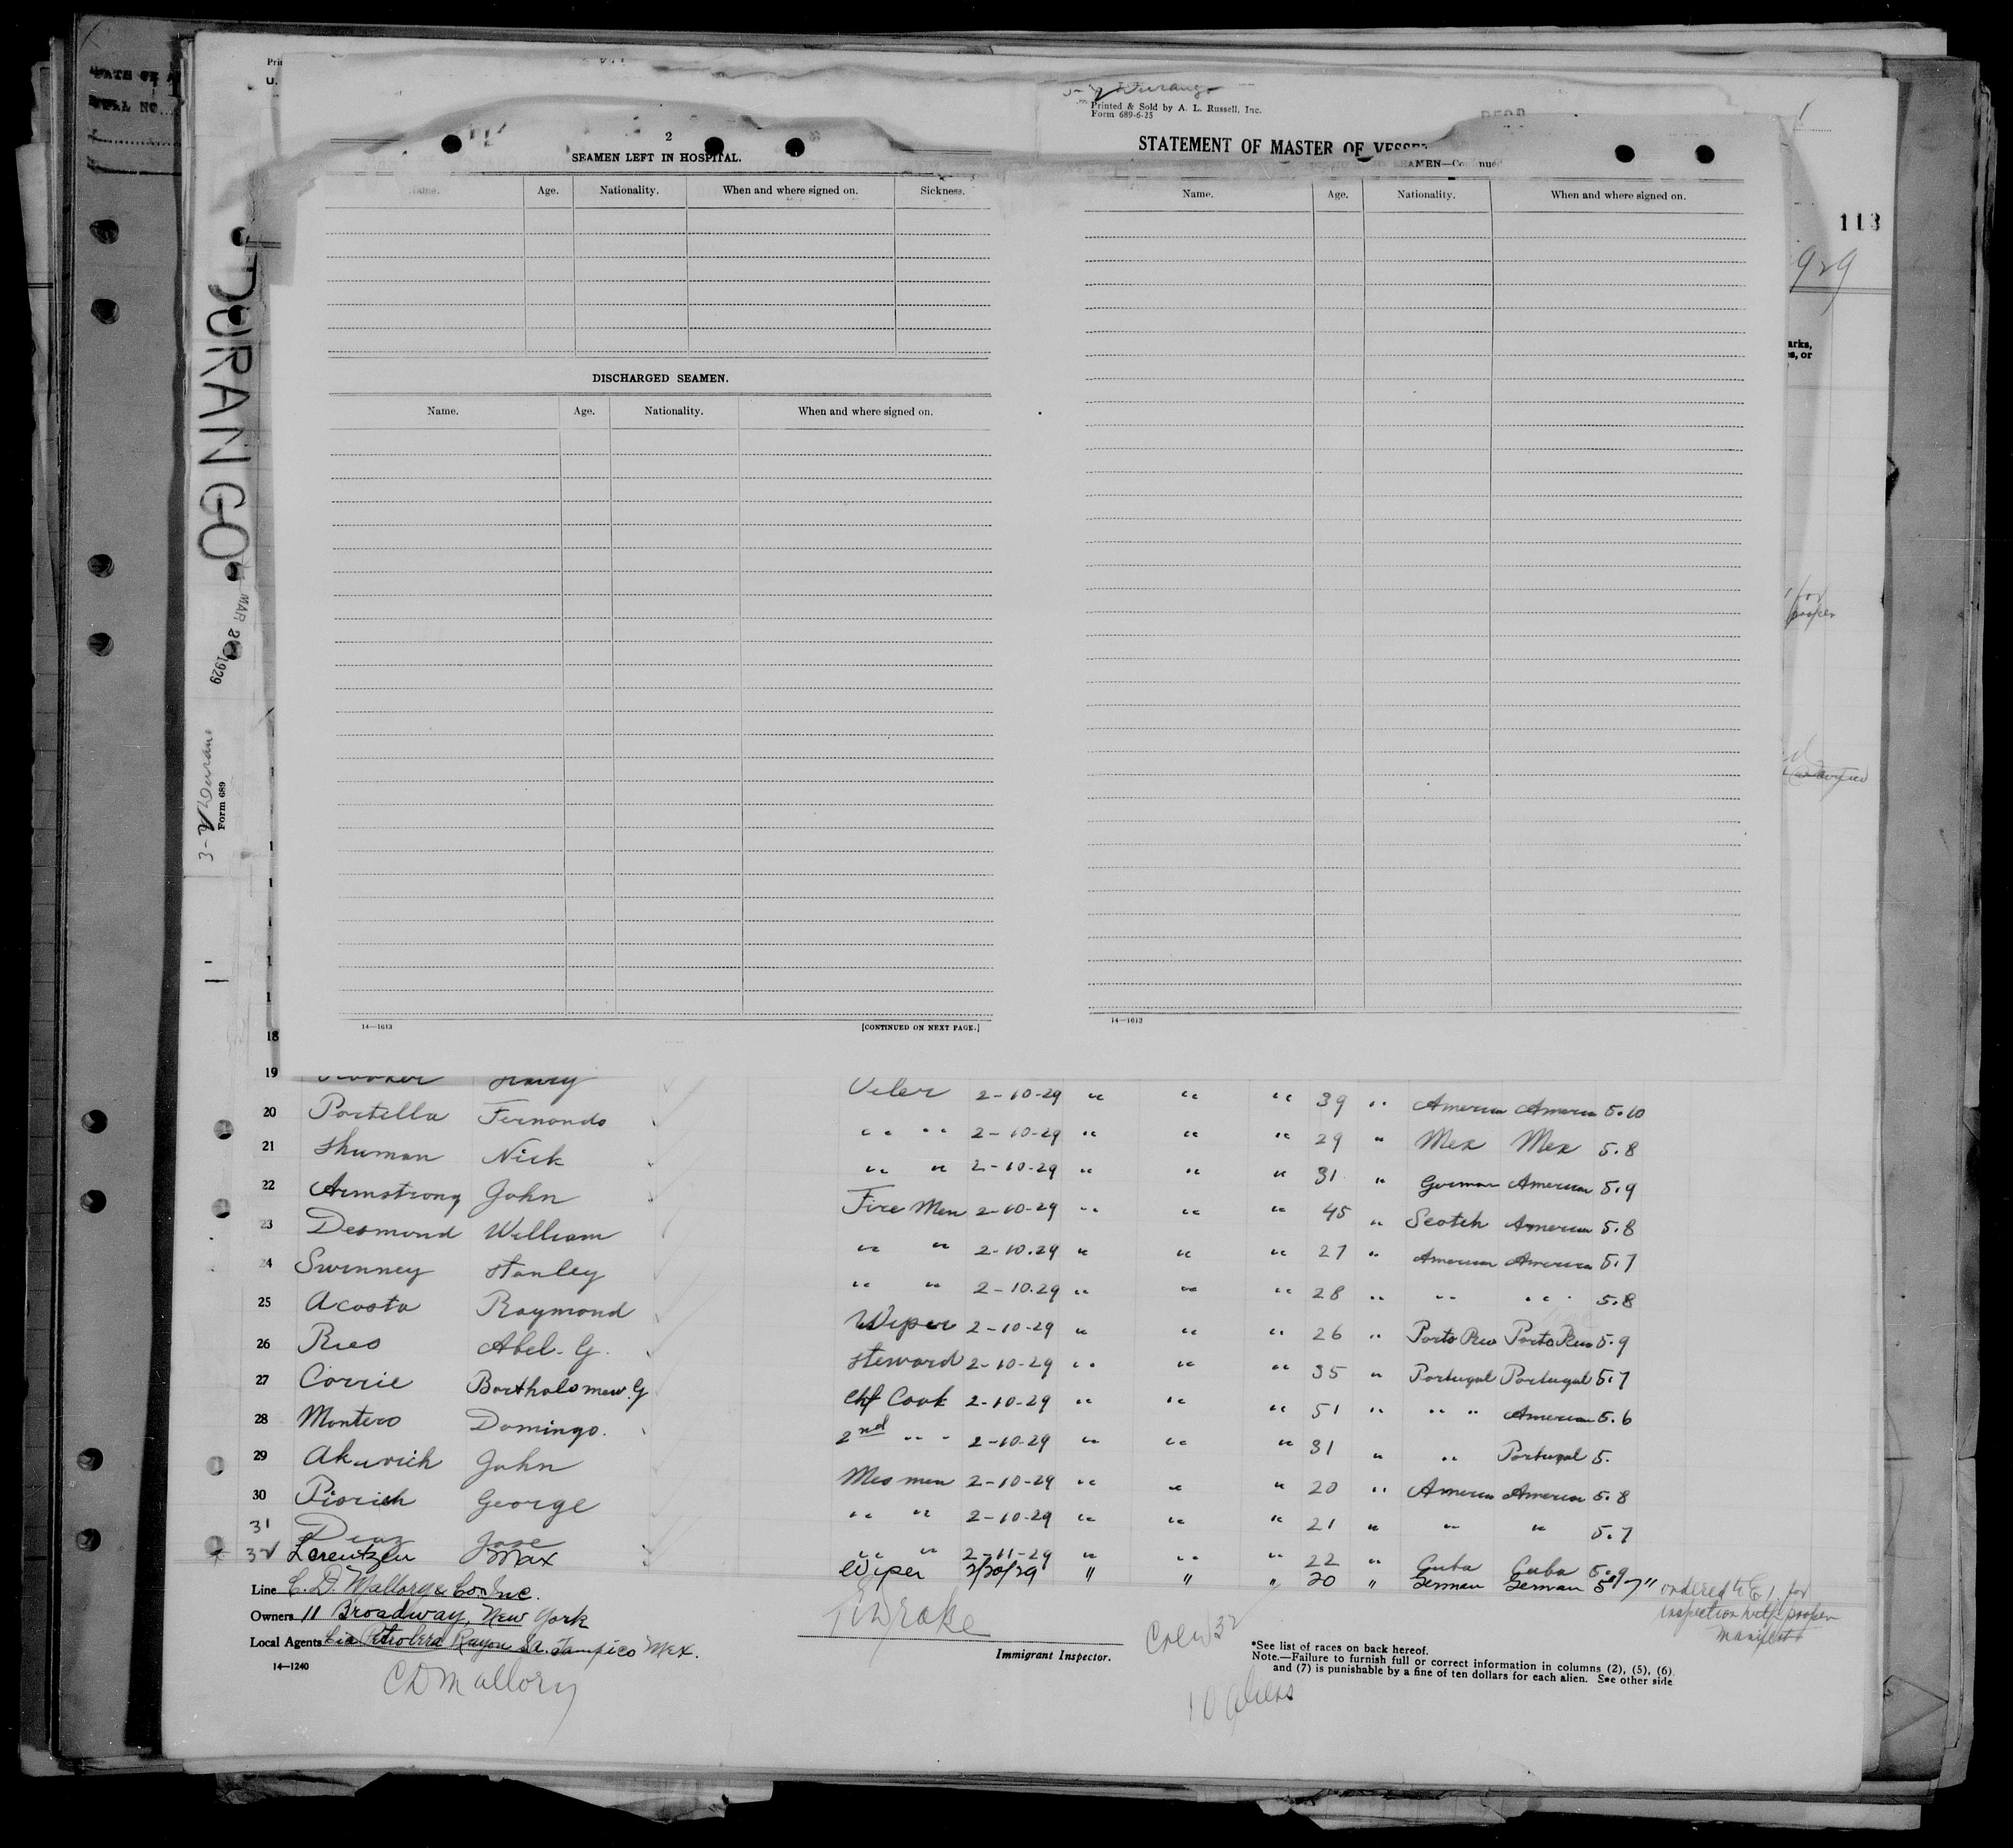 DURANGO
MAR 2 1929
Form 689
113
929
Printed & Sold by A. L. Russell, Inc.
Form 689-6-25
2
SEAMEN LEFT IN HOSPITAL.
Name. Age. Nationality. When and where signed on. Sickness.
DISCHARGED SEAMEN.
Name. Age. Nationality. When and where signed on.
14—1613 [CONTINUED ON NEXT PAGE.]
STATEMENT OF MASTER OF VESSEL
SEAMEN—Continued
Name. Age. Nationality. When and where signed on.
14—1613
18
19 Harry Oiler 2-10-29 " " " 39 " American American 5.10
20 Portella Fernando " " 2-10-29 " " " 29 " Mex Mex 5.8
21 Shuman Nick " " 2-10-29 " " " 31 " German American 5.9
22 Armstrong John Fire Men 2-10-29 " " " 45 " Scotch American 5.8
23 Desmond William " " 2-10.29 " " " 27 " American American 5.7
24 Swinney Stanley " " 2-10.29 " " " 28 " " " 5.8
25 Acosta Raymond Wiper 2-10-29 " " " 26 " Porto Rico Porto Rico 5.9
26 Ries Abel. G. Steward 2-10-29 " " " 35 " Portugal Portugal 5.7
27 Corrie Bartholomew. G Chf Cook 2-10-29 " " " 51 " " " American 5.6
28 Montero Domingo. 2nd " " 2-10-29 " " " 31 " " Portugal 5.
29 Akurich John Mes men 2-10-29 " " " 20 " American American 5.8
30 Piorich George " " 2-10-29 " " " 21 " " " 5.7
31 Diaz Jose " " 2-11-29 " " " 22 " Cuba Cuba 5.9
32 Lorentzen Max Wiper 2/20/29 " " " 20 " German German 5 7" ordered to E I for
inspection with proper
manifest
Line C. D. Mallory & Co. Inc.
Owners 11 Broadway, New York
Local Agents Cia Petrolera Rayon S.A. Tampico Mex.
14—1240
C D Mallory
Drake
Immigrant Inspector.
Crew 32
10 aliens
*See list of races on back hereof.
Note.—Failure to furnish full or correct information in columns (2), (5), (6)
and (7) is punishable by a fine of ten dollars for each alien. See other side